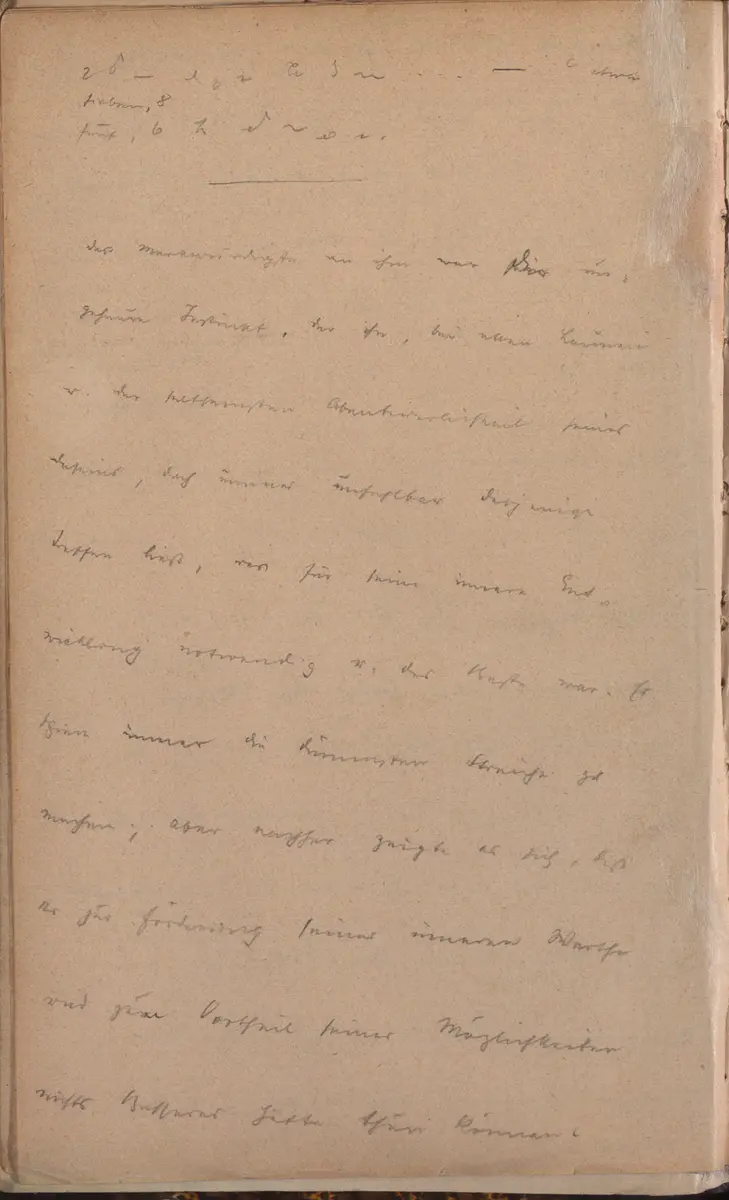 sieben, 8
fünf, 6
das Merkwürdigste an ihm war der un-
geheure Instinkt, der ihn, bei allen Launen
u. der seltsamsten Abenteuerlichkeit seines
Daseins, doch immer unfehlbar dasjenige
treffen ließ, was für seine innere Ent-
wicklung notwendig u. das Beste war. Er
schien immer die dümmsten Streiche zu
machen; aber nachher zeigte es sich, daß
er zur Förderung seiner inneren Werthe
und zum Vortheil seiner Möglichkeiten
nichts Besseres hätte thun können.